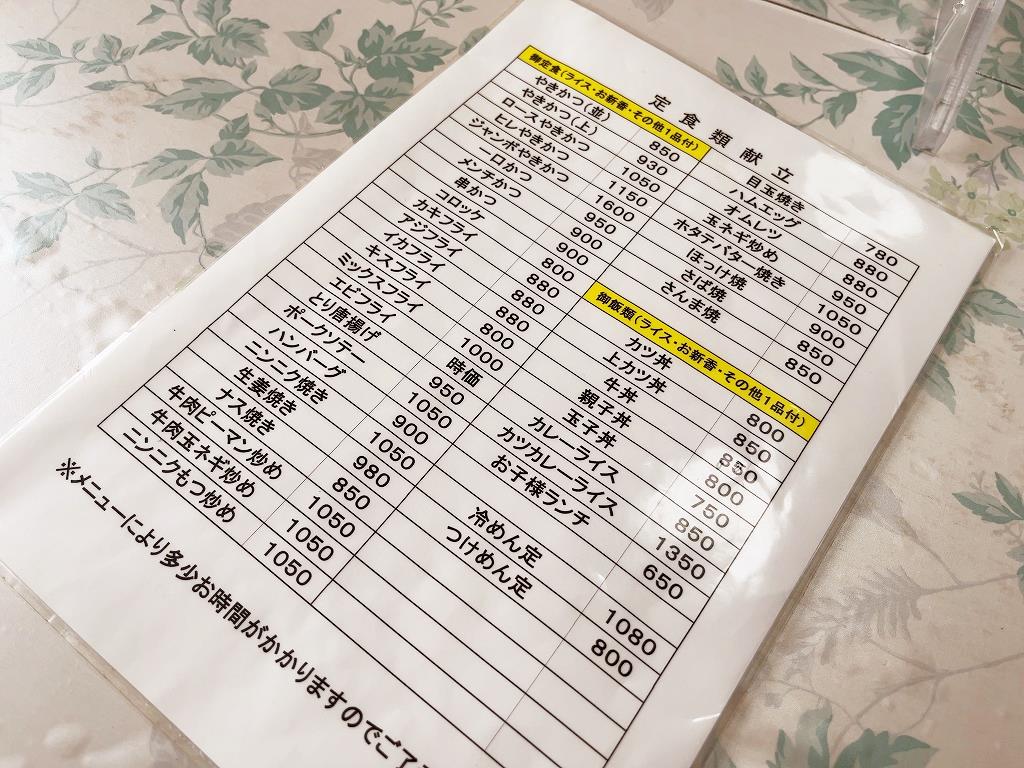 定食類献立
御定食(ライス・お新香・その他1品付)
やきかつ(並) 850
やきかつ(上) 930
ロースやきかつ 1050
ヒレやきかつ 1150
ジャンボやきかつ 1600
一口かつ 950
メンチかつ 900
串かつ 900
コロッケ 800
カキフライ 880
アジフライ 880
イカフライ 880
キスフライ 800
ミックスフライ 1000
エビフライ 時価
とり唐揚げ 950
ポークソテー 1050
ハンバーグ 900
ニンニク焼き 1050
生姜焼き 980
ナス焼き 850
牛肉ピーマン炒め 1050
牛肉玉ネギ炒め 1050
ニンニクもつ炒め 1050
目玉焼き 780
ハムエッグ 880
オムレツ 880
玉ネギ炒め 950
ホタテバター焼き 1050
ほっけ焼 900
さば焼 850
さんま焼 850
御飯類(ライス・お新香・その他1品付)
カツ丼 800
上カツ丼 850
牛丼 850
親子丼 800
玉子丼 750
カレーライス 850
カツカレーライス 1350
お子様ランチ 650
冷めん定 1080
つけめん定 800
※メニューにより多少お時間がかかりますのでご了